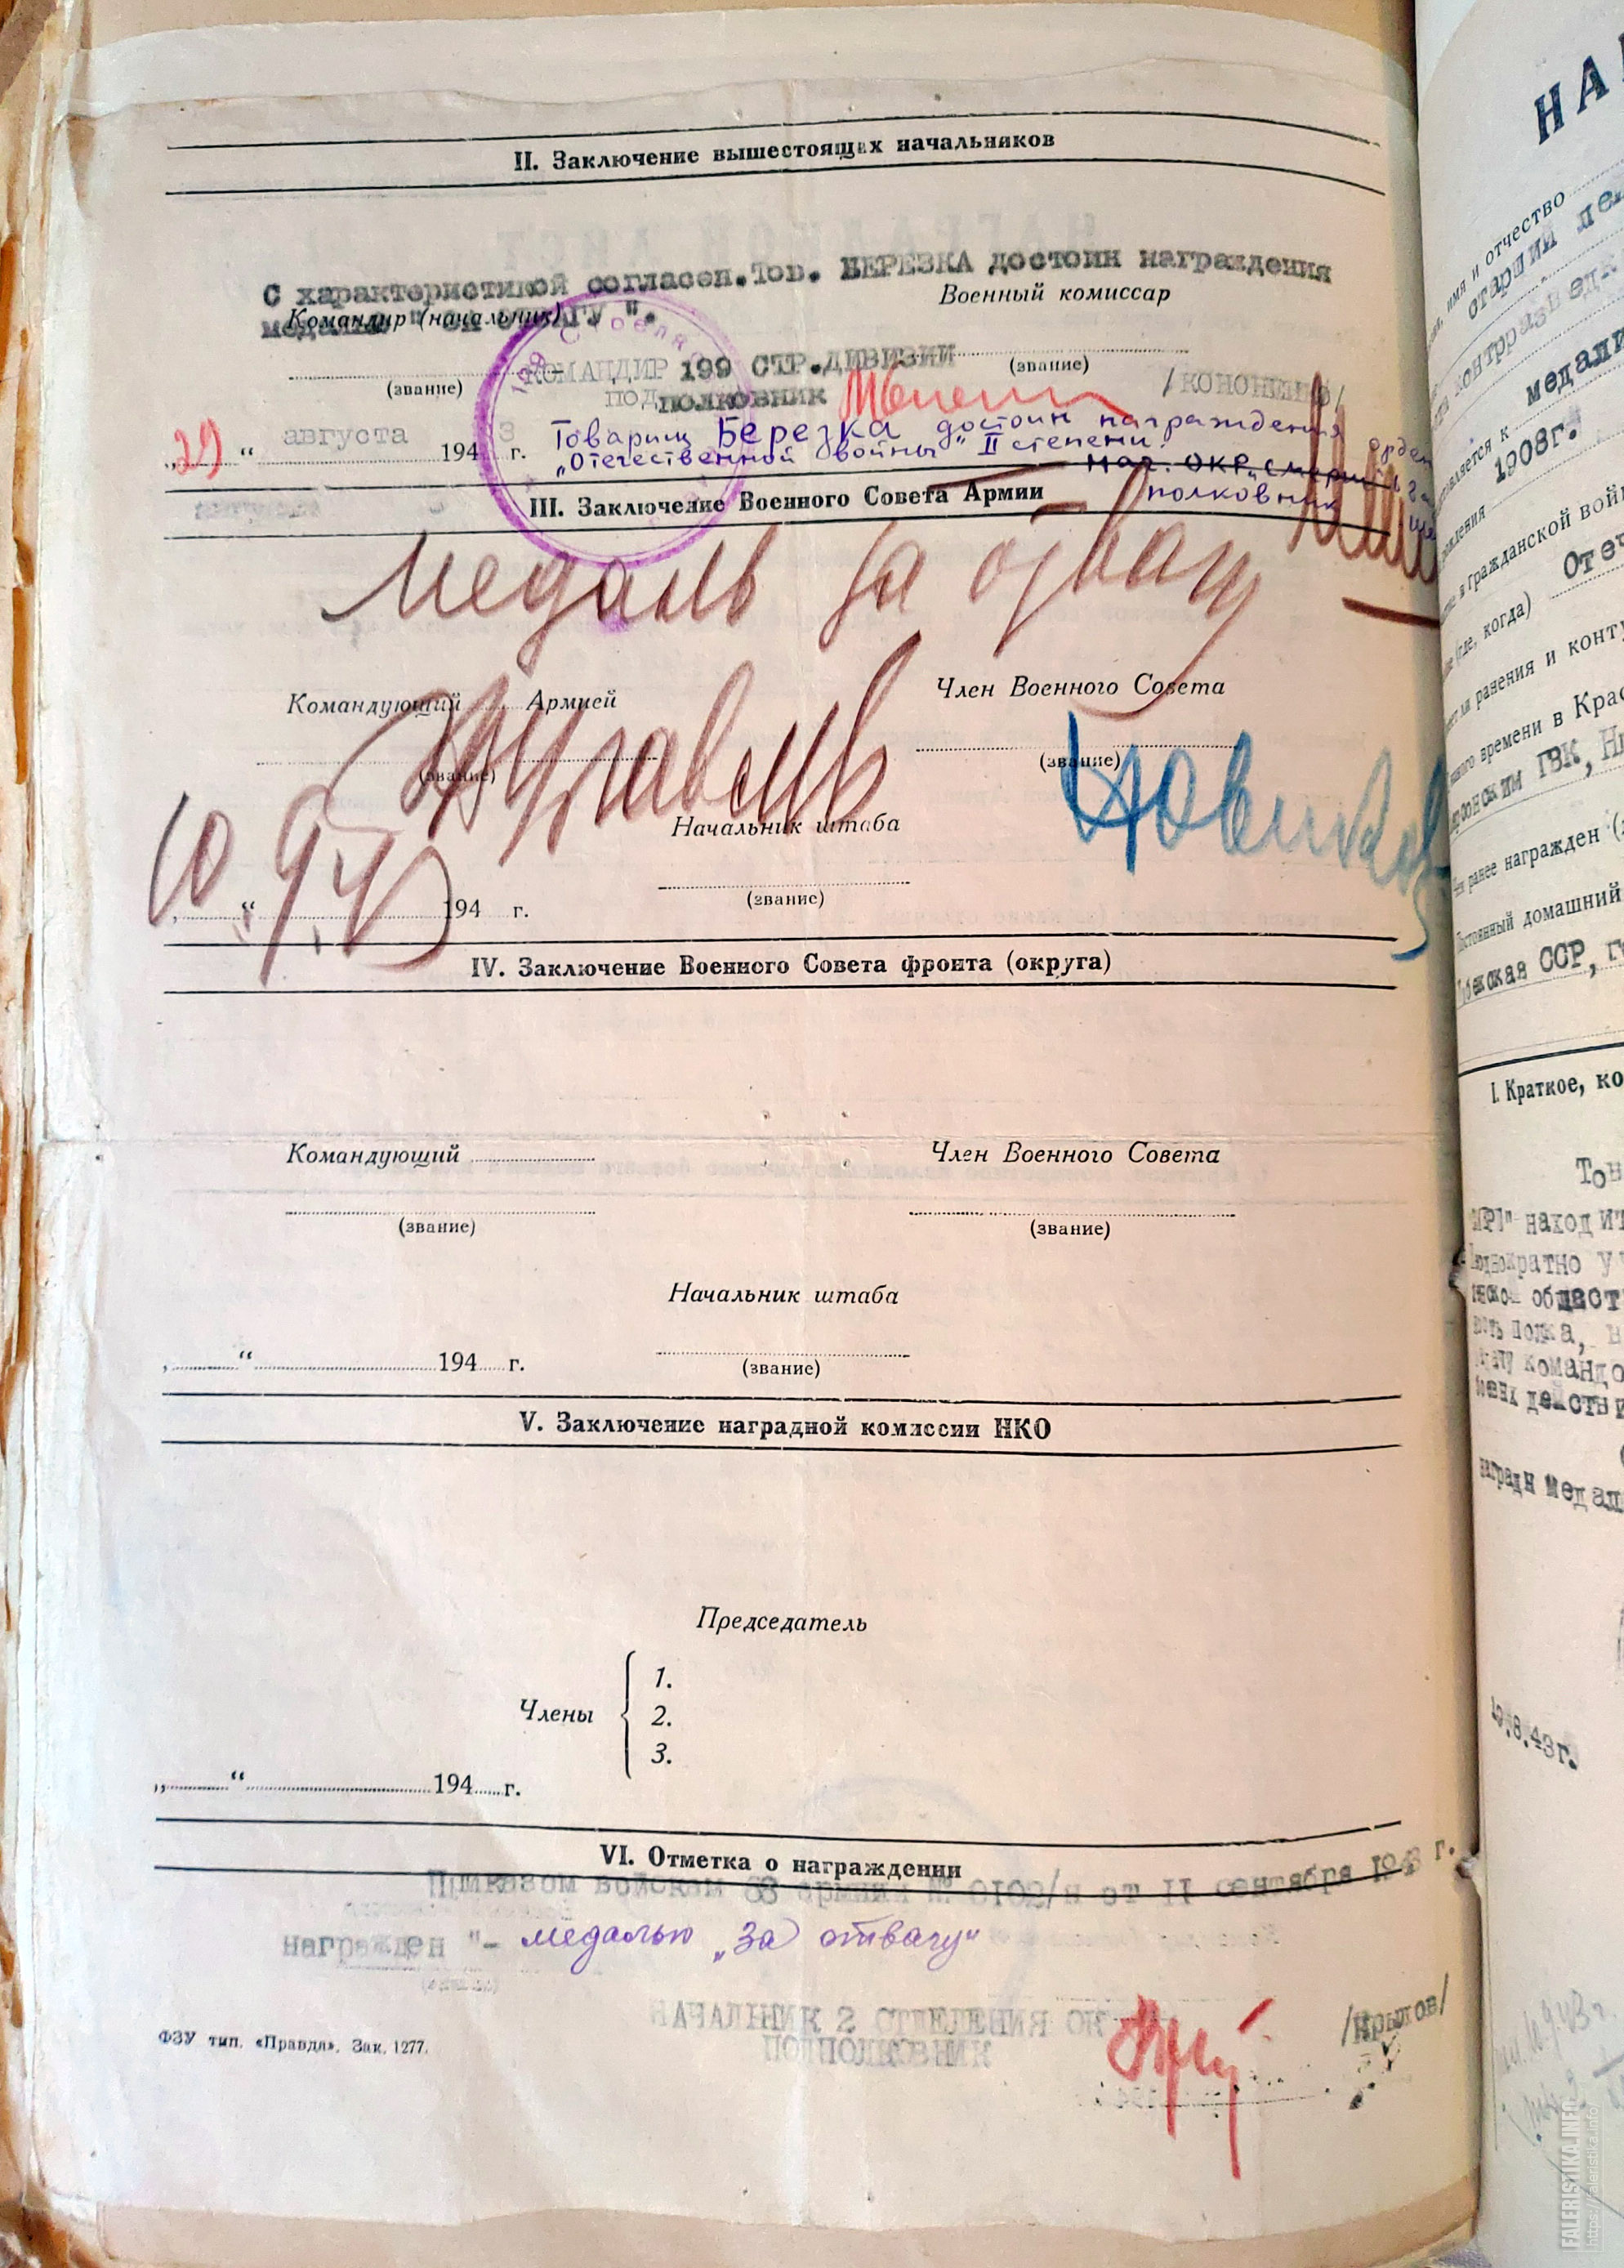 II. Заключение вышестоящих начальников
С характеристикой согласен.Тов. БЕРЕЗКА достоин награждения
медалью "ЗА ОТВАГУ".
Командир (начальник)
Военный комиссар
(звание)
(звание)
КОМАНДИР 199 СТР.ДИВИЗИИ
ПОДПОЛКОВНИК /КОНОНЕНКО/
„29“ августа 1943 г.
Товарищ Березка достоин награждения орден
„Отечественной войны" II степени.
Нач. ОКР „Смерш"
полковник
III. Заключение Военного Совета Армии
медаль за отвагу
Командующий Армией
Член Военного Совета
(звание)
(звание)
Журавлев
Новиков
Начальник штаба
(звание)
10 9 43
„ “ 194 г.
IV. Заключение Военного Совета фронта (округа)
Командующий
Член Военного Совета
(звание)
(звание)
Начальник штаба
„ “ 194 г.
(звание)
V. Заключение наградной комиссии НКО
Председатель
Члены
1.
2.
3.
„ “ 194 г.
VI. Отметка о награждении
Приказом войскам 68 армии № 0102/н от 11 сентября 1943 г.
награжден "- медалью „За отвагу"
НАЧАЛЬНИК 2 ОТДЕЛЕНИЯ ОК
ПОДПОЛКОВНИК
/Крылов/
ФЗУ тип. «Правда». Зак. 1277.
НА
имя и отчество
старший ле
контрразведк
к медали
рождения 1908г.
в гражданской вой
Отеч
(где, когда)
ли ранения и конту
времени в Крас
ГВК,
ранее награжден
Постоянный домашний
ССР, г
I. Краткое, ко
Тов
находит
област
полка,
командо
действи
медал
.8.43г.
FALERISTIKA.INFO
https://faleristika.info